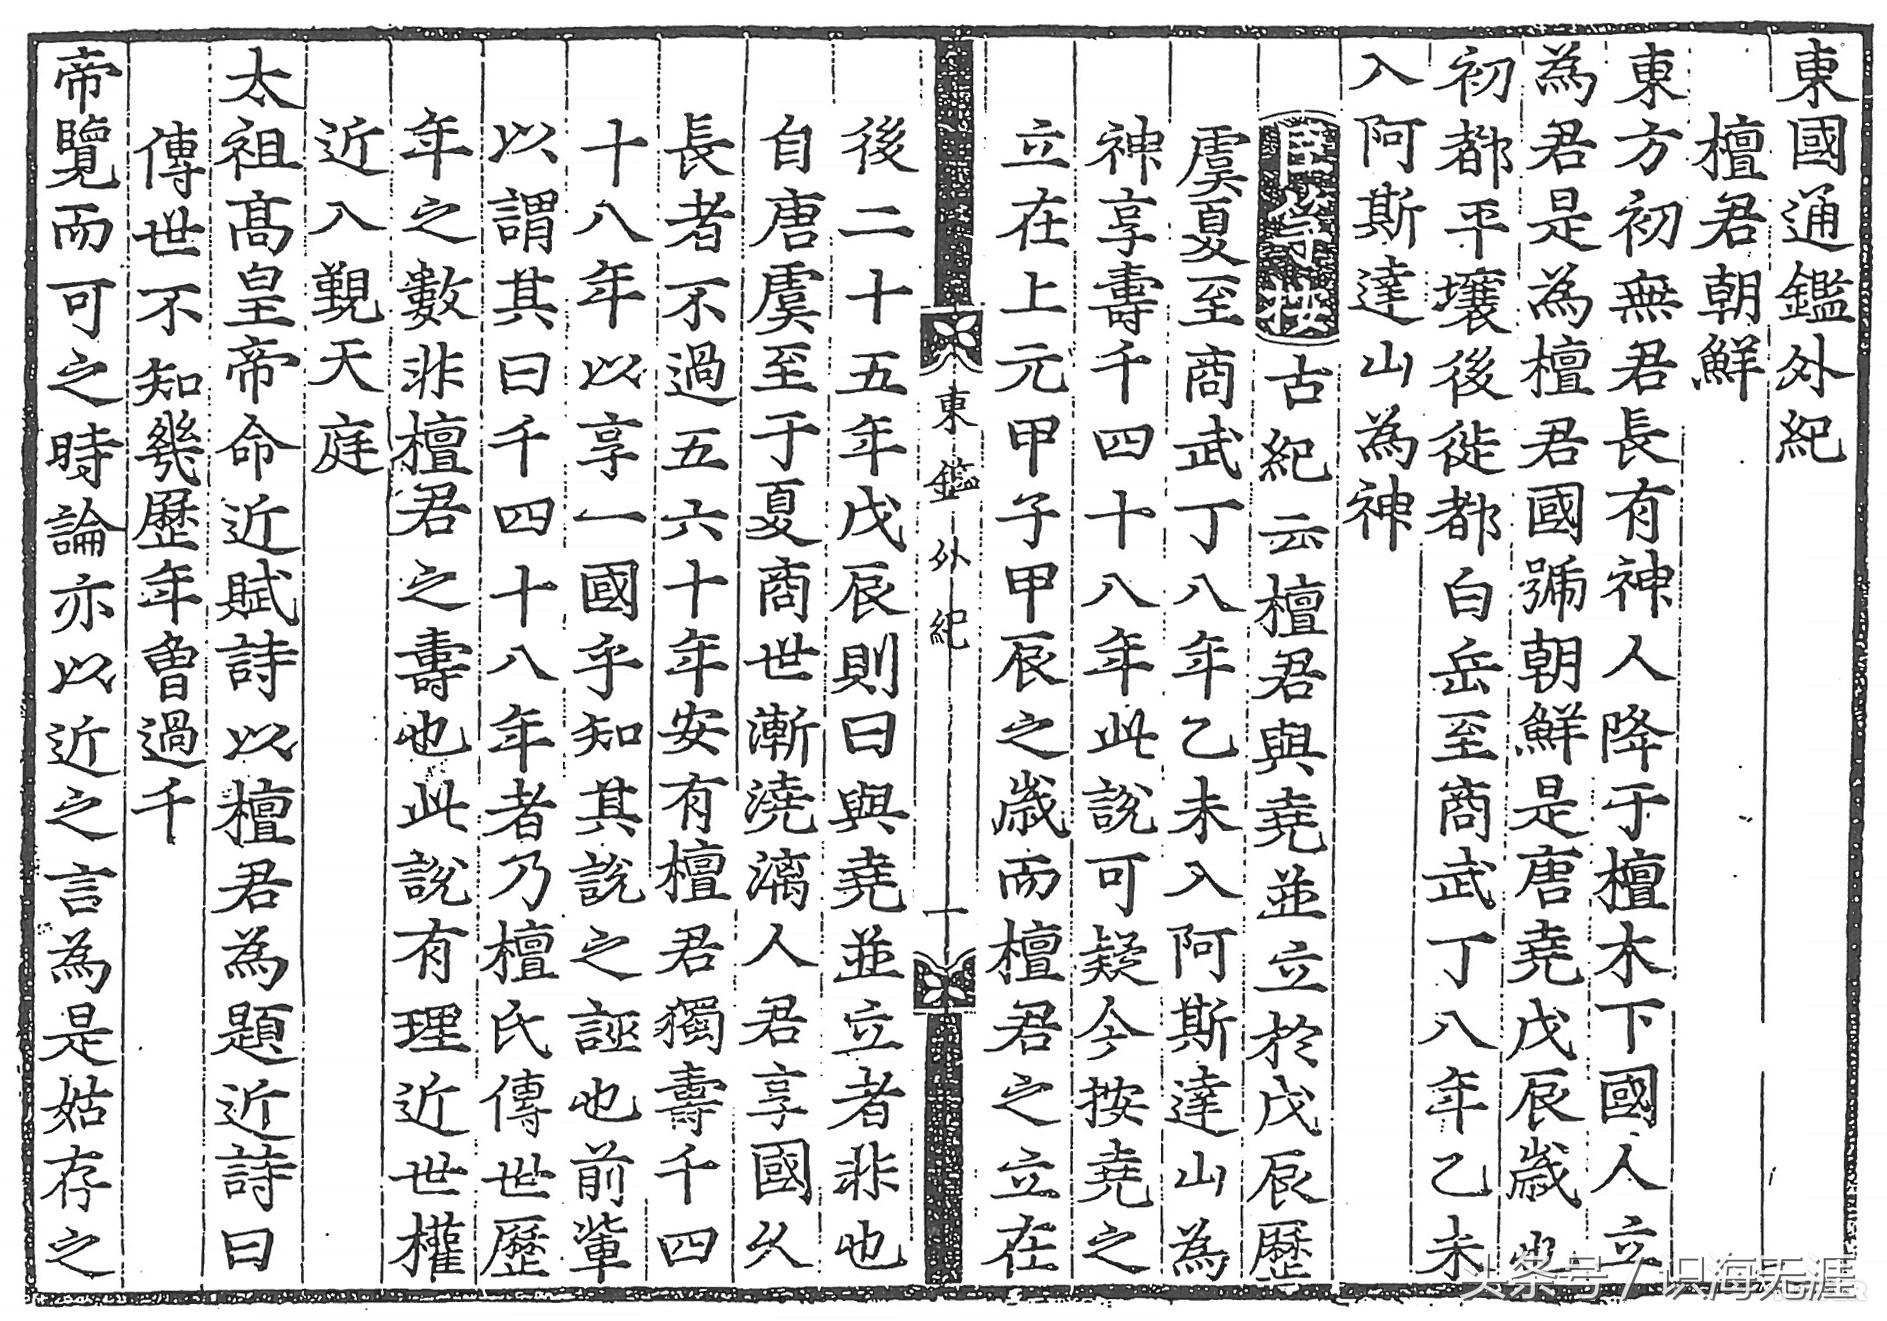 東國通鑑外紀
檀君朝鮮
東方初無君長有神人降于檀木下國人立
為君是為檀君國號朝鮮是唐堯戊辰歲也
初都平壤後徙都白岳至商武丁八年乙未
入阿斯達山為神
臣等按古紀云檀君與堯並立於戊辰歷
虞夏至商武丁八年乙未入阿斯達山為
神享壽千四十八年此說可疑今按堯之
立在上元甲子甲辰之歲而檀君之立在
東鑑外紀 一
後二十五年戊辰則曰與堯並立者非也
自唐虞至于夏商世漸澆漓人君享國久
長者不過五六十年安有檀君獨壽千四
十八年以享一國乎知其說之誣也前輩
以謂其曰千四十八年者乃檀氏傳世歷
年之數非檀君之壽也此說有理近世權
近入覲天庭
太祖高皇帝命近賦詩以檀君為題近詩曰
傳世不知幾歷年曾過千
帝覽而可之時論亦以近之言為是姑存之
头条号 / 识海无涯